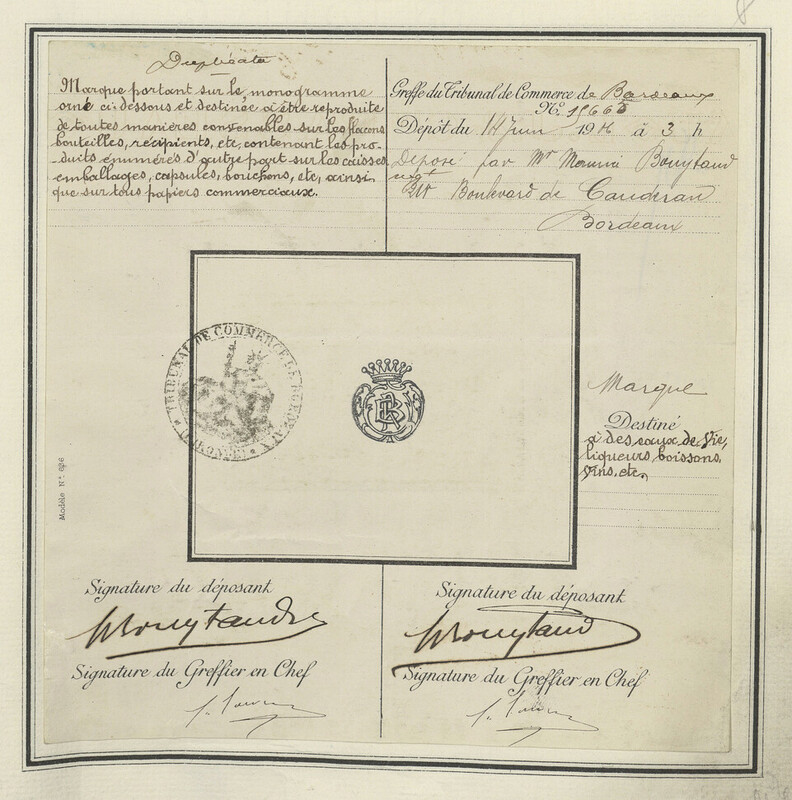 Duplicata
Marque portant sur le monogramme
orné ci-dessous et destinée à être reproduite
de toutes manières convenables sur les flacons
bouteilles, récipients, etc, contenant les pro-
duits énumérés d'autre part sur les caisses,
emballages, capsules, bouchons, etc, ainsi
que sur tous papiers commerciaux.
Greffe du Tribunal de Commerce de Bordeaux
No.
Dépôt du 14 Juin 1916 à 3 h
Déposé par Mr Bouytaud
Boulevard de Caudéran
Bordeaux
TRIBUNAL DE COMMERCE DE BORDEAUX
(GIRONDE)
Marque
Destiné
à des eaux de Vie,
liqueurs, boissons,
vins, etc,
Modèle No. 626
Signature du déposant
Signature du déposant
Bouytaud
Signature du Greffier en Chef
Signature du Greffier en Chef